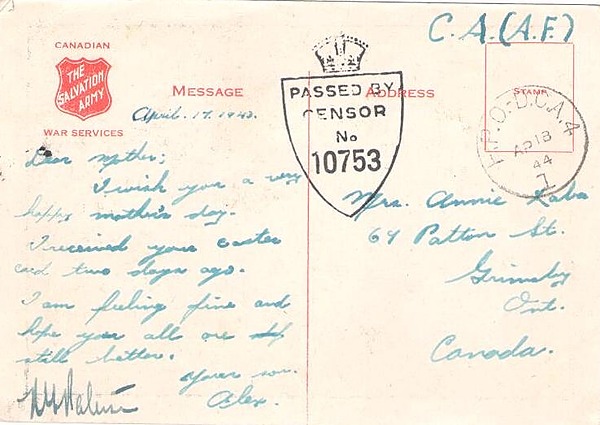 C.A.(A.F.)
CANADIAN
THE
SALVATION
ARMY
WAR SERVICES
MESSAGE
ADDRESS
STAMP
PASSED BY
CENSOR
No
10753
F.P.O.-D.C.A.4
AP 18
44
April. 17, 1943.
Dear Mother;
I wish you a very
happy mother's day.
I received your easter
card two days ago.
I am feeling fine and
hope you all are
still better.
Your son.
Alex.
Mrs. Annie
69 Patton St.
Grimsby
Ont.
Canada.